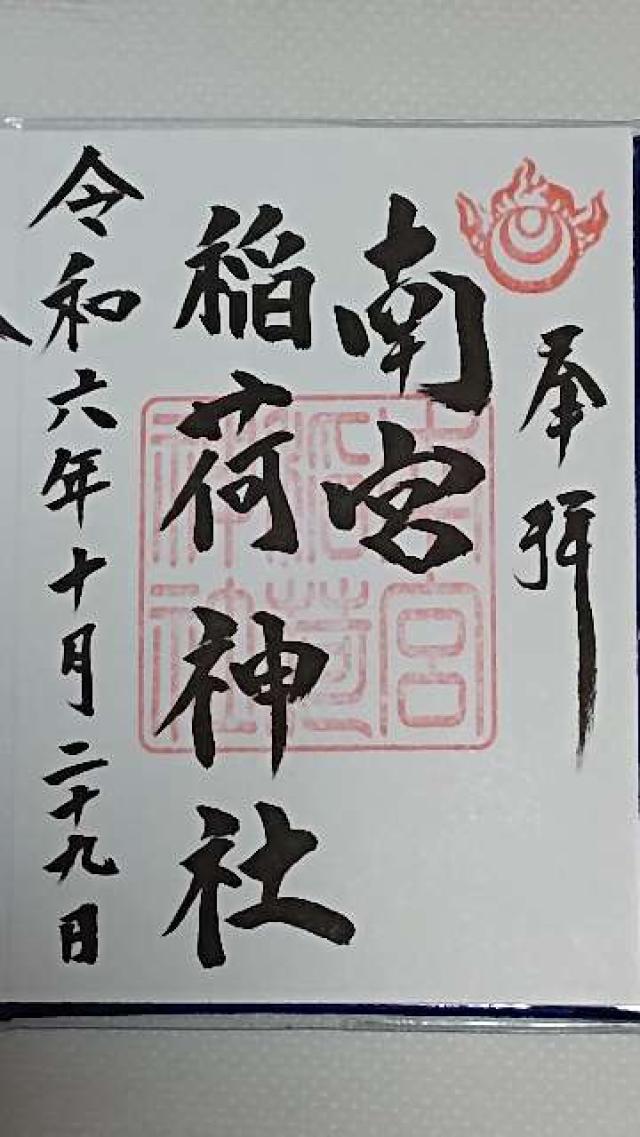 奉拝
南宮
稲荷神社
令和六年十月二十九日
南宮
稲荷
神社